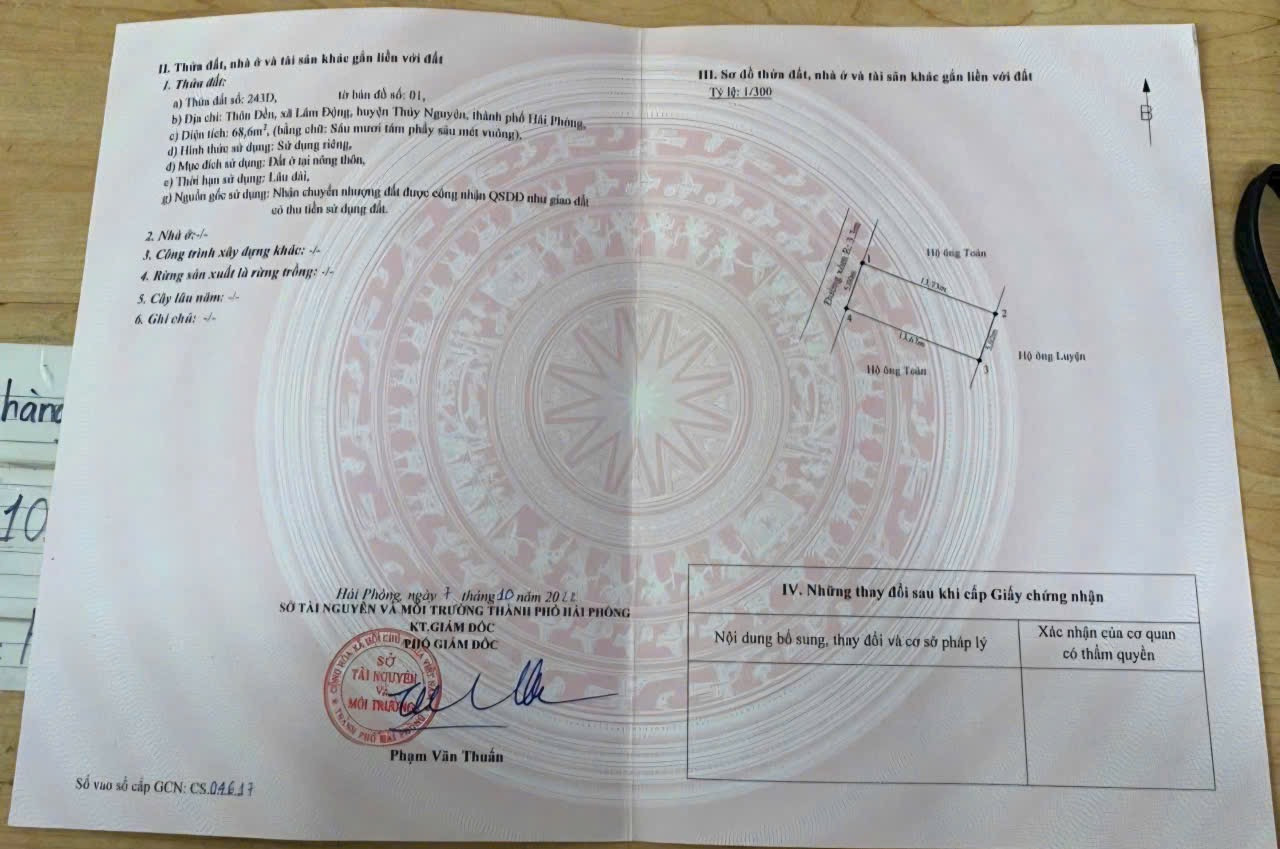 II. Thửa đất, nhà ở và tài sản khác gắn liền với đất
1. Thửa đất:
a) Thửa đất số: 243D, tờ bản đồ số: 01,
b) Địa chỉ: Thôn Đền, xã Lâm Động, huyện Thủy Nguyên, thành phố Hải Phòng,
c) Diện tích: 68,6m², (bằng chữ: Sáu mươi tám phẩy sáu mét vuông),
d) Hình thức sử dụng: Sử dụng riêng,
đ) Mục đích sử dụng: Đất ở tại nông thôn,
e) Thời hạn sử dụng: Lâu dài,
g) Nguồn gốc sử dụng: Nhận chuyển nhượng đất được công nhận QSDĐ như giao đất
có thu tiền sử dụng đất.
2. Nhà ở:-/-
3. Công trình xây dựng khác: -/-
4. Rừng sản xuất là rừng trồng: -/-
5. Cây lâu năm: -/-
6. Ghi chú: -/-
Hải Phòng, ngày 7 tháng 10 năm 2022
SỞ TÀI NGUYÊN VÀ MÔI TRƯỜNG THÀNH PHỐ HẢI PHÒNG
KT.GIÁM ĐỐC
PHÓ GIÁM ĐỐC
CỘNG HÒA XÃ HỘI CHỦ NGHĨA VIỆT NAM
SỞ
TÀI NGUYÊN
VÀ
MÔI TRƯỜNG
THÀNH PHỐ HẢI PHÒNG
Phạm Văn Thuấn
Số vào sổ cấp GCN: CS.04617
III. Sơ đồ thửa đất, nhà ở và tài sản khác gắn liền với đất
Tỷ lệ: 1/300
B
Đường xóm R: 3.3m
1
Hộ ông Toàn
13,73m
2
4
13,67m
3
Hộ ông Luyện
Hộ ông Toàn
IV. Những thay đổi sau khi cấp Giấy chứng nhận
Nội dung bổ sung, thay đổi và cơ sở pháp lý
Xác nhận của cơ quan
có thẩm quyền
hàng
10